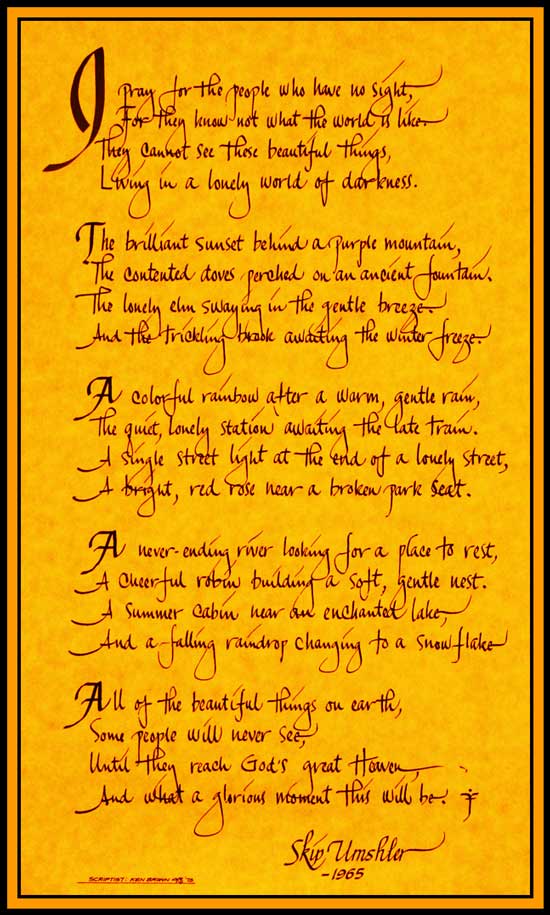 I pray for the people who have no sight,
For they know not what the world is like.
They cannot see these beautiful things,
Living in a lonely world of darkness.
The brilliant sunset behind a purple mountain,
The contented doves perched on an ancient fountain.
The lonely elm swaying in the gentle breeze.
And the trickling brook awaiting the winter freeze.
A colorful rainbow after a warm, gentle rain,
The quiet, lonely station awaiting the late train.
A single street light at the end of a lonely street,
A bright, red rose near a broken park seat.
A never-ending river looking for a place to rest,
A cheerful robin building a soft, gentle nest.
A summer cabin near an enchanted lake,
And a falling raindrop changing to a snowflake
All of the beautiful things on earth,
Some people will never see,
Until they reach God's great Heaven,
And what a glorious moment this will be.
Skip Umshler
-1965
SCRIPTIST: KEN BROWN